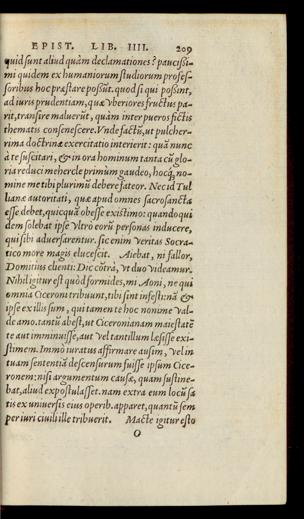 EPIST. LIB. IIII. 209
quid sunt aliud quàm declamationes? paucißi-
mi quidem ex humaniorum studiorum profes-
soribus hoc præstare possũt. quod si qui possint,
ad iuris prudentiam, quæ vberiores fructus pa-
rit, transire maluerũt, quàm inter pueros fictis
thematis consenescere. Vnde factũ, ut pulcher-
rima doctrinæ exercitatio interierit: quã nunc
à te suscitari, & in ora hominum tanta cũ glo-
ria reduci mehercle primum gaudeo, hocq́; no-
mine me tibi plurimũ debere fateor. Nec id Tul
lianæ autoritati, quæ apud omnes sacrosanctæ
esse debet, quicquã obesse existimo: quandoqui
dem solebat ipse vltro eorũ personas inducere,
qui sibi aduersarentur. sic enim veritas Socra-
tico more magis elucescit. Aiebat, ni fallor,
Domitius clienti: Dic cõtrà, vt duo videamur.
Nihil igitur est quòd formides, mi Aoni, ne qui
omnia Ciceroni tribuunt, tibi sint infesti: nã &
ipse ex illis sum, qui tamen te hoc nomine val-
de amo. tantũ abest, ut Ciceronianam maiestatẽ
te aut imminuisse, aut vel tantillum læsisse exi-
stimem. Immò iuratus affirmare ausim, vel in
tuam sententiã descensurum fuisse ipsum Cice-
ronem: nisi argumentum causæ, quam sustine-
bat, aliud expostulasset. nam extra eum locũ sa
tis ex uniuersis eius operib. apparet, quantũ sem
per iuri ciuili ille tribuerit. Macte igitur esto
O